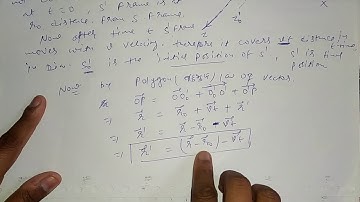 at t = 0, s' frame is at
r₀ distance. from S frame.
Now after time t S' frame
moves with v velocity. therefore it covers vt distance
in Dirn. S₀' is the initial position of S', s' is final
position
time
Now by Polygon law of vector
OP⃗ = OO₀'⃗ + O₀'O'⃗ + O'P⃗
⇒ r⃗ = r⃗₀ + v⃗t + r⃗'
⇒ r⃗' = r⃗ - r⃗₀ - v⃗t
⇒ r⃗' = (r⃗ - r⃗₀) - v⃗t
X
z
z₀